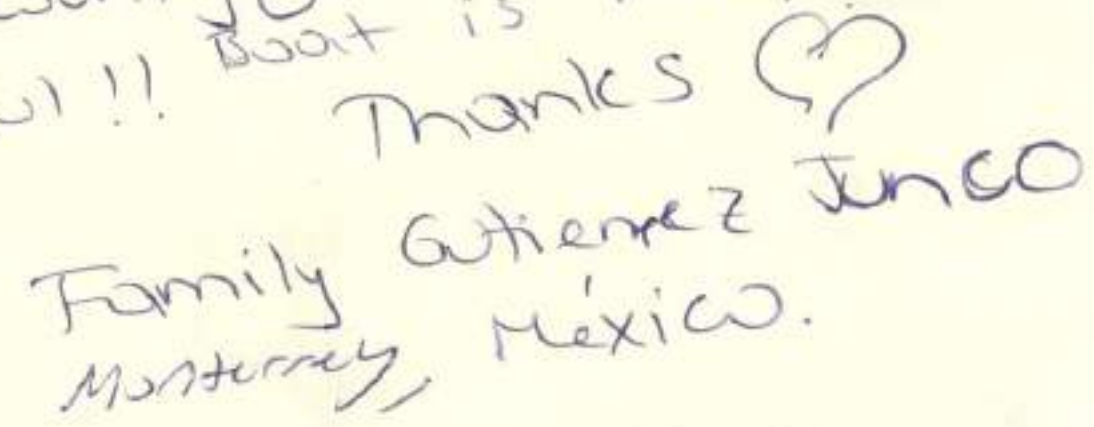 !! Boat is
Thanks ♡
Family Gutierrez Junco
Monterrey, México.